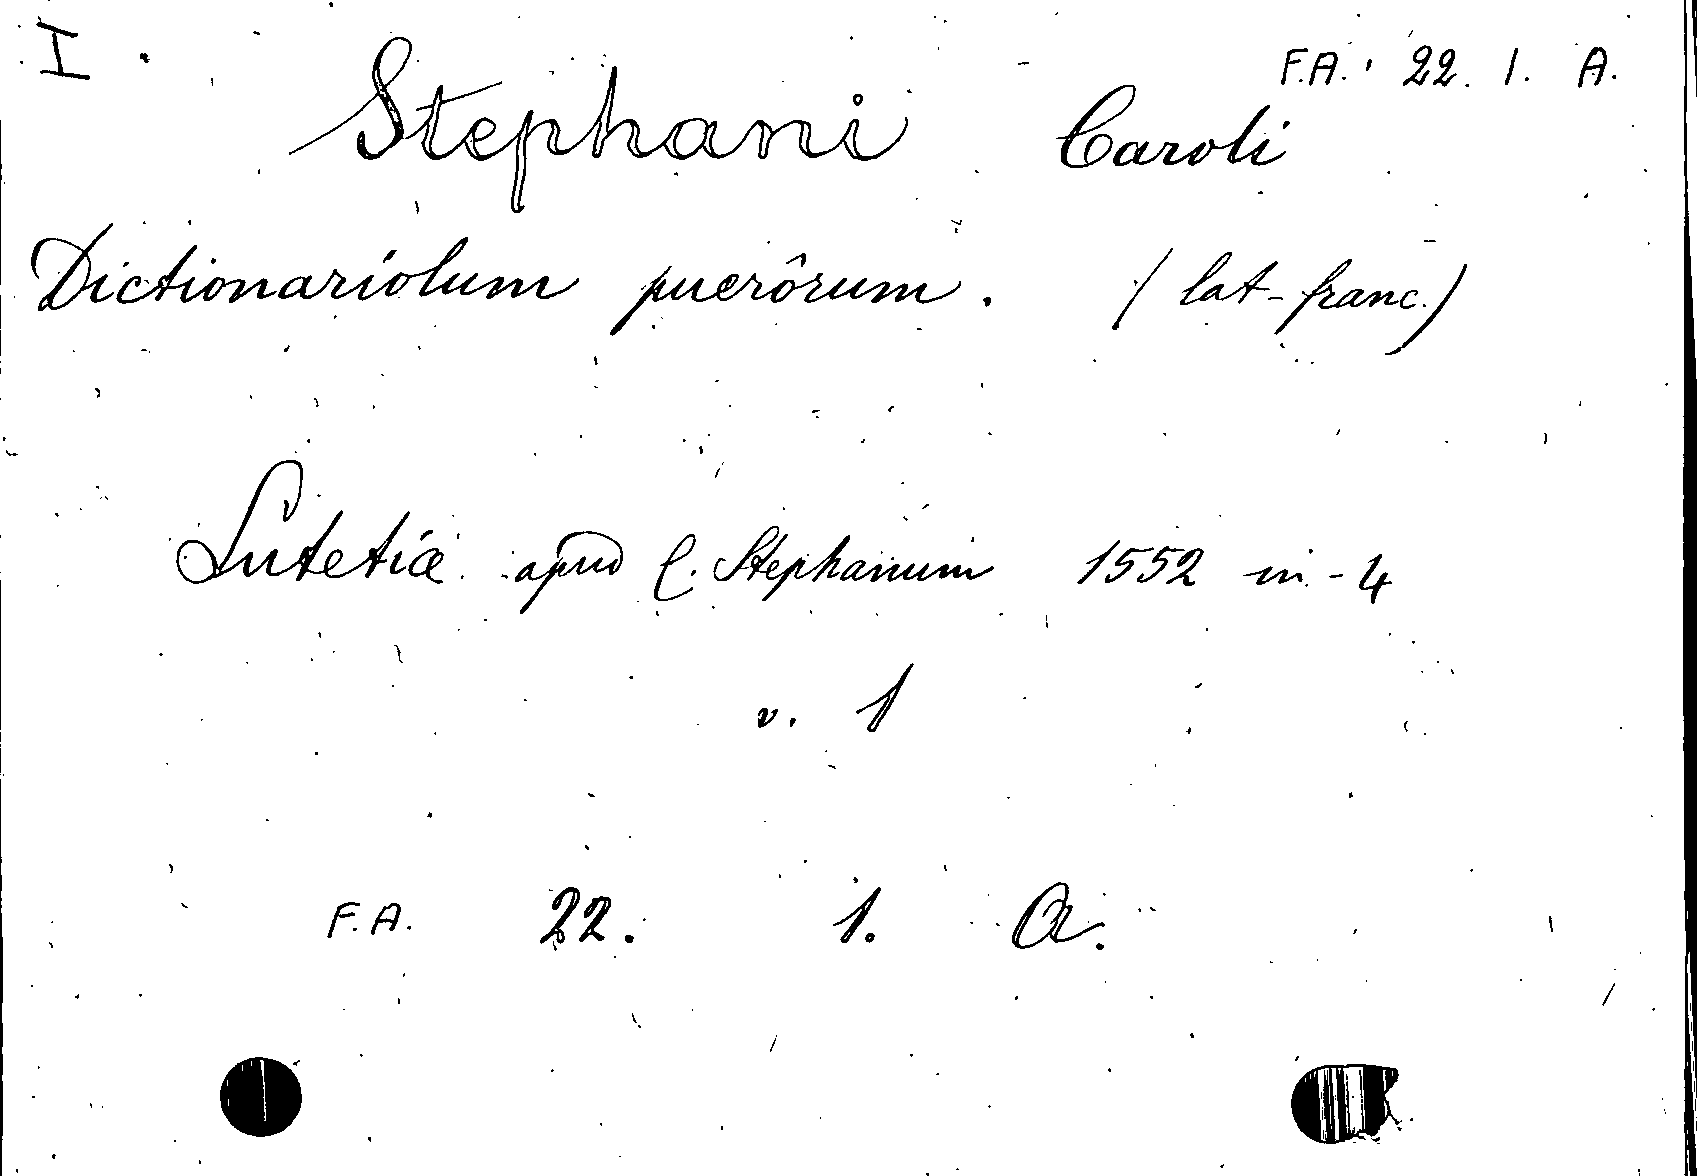 I.
F.A. 22. 1. A.
Stephani Caroli
Dictionariolum puerôrum. (lat-franc.)
Lutetiæ apud C. Stephanum 1552 in-4
v. 1
F.A. 22. 1. A.